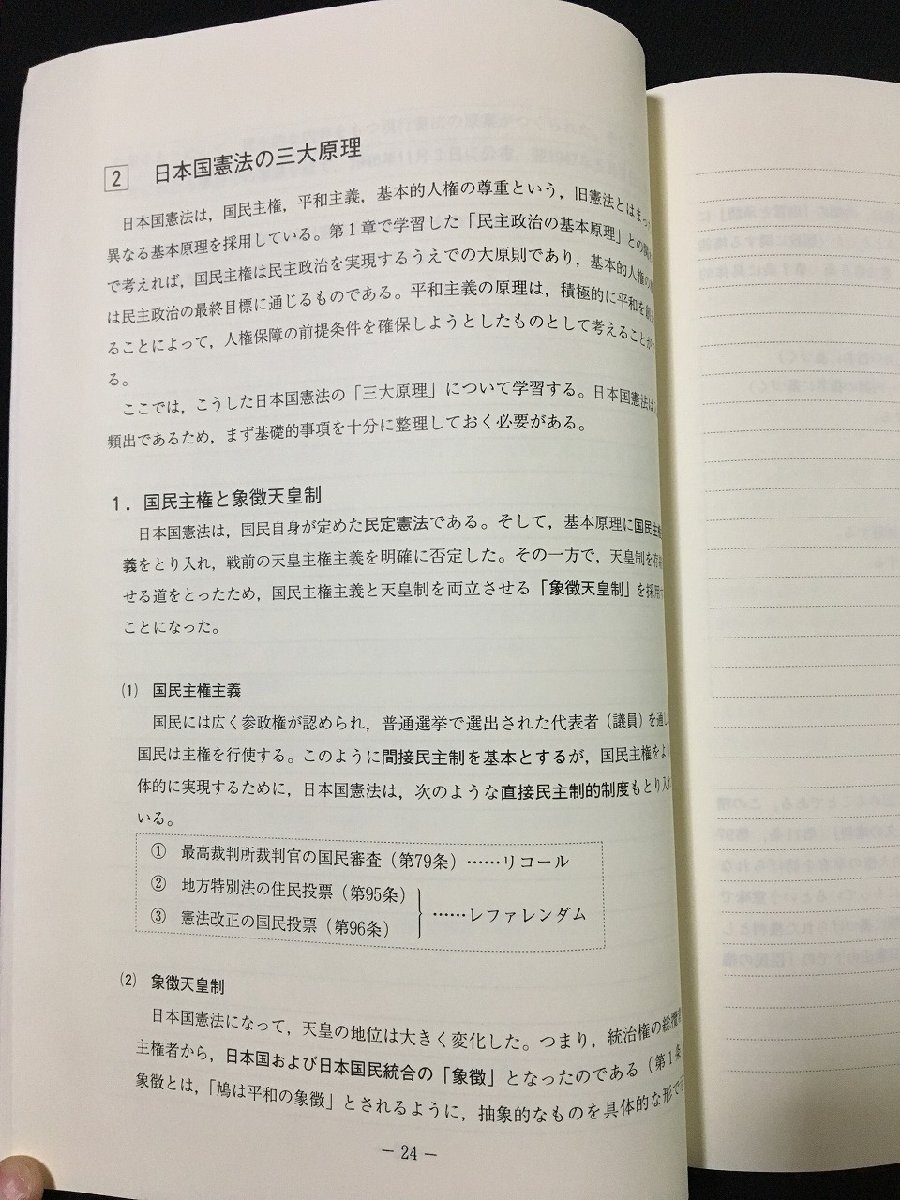 2 日本国憲法の三大原理
日本国憲法は，国民主権，平和主義，基本的人権の尊重という，旧憲法とはまっ
異なる基本原理を採用している。第1章で学習した「民主政治の基本原理」との
で考えれば，国民主権は民主政治を実現するうえでの大原則であり，基本的人権の
は民主政治の最終目標に通じるものである。平和主義の原理は，積極的に平和を
ることによって，人権保障の前提条件を確保しようとしたものとして考えることが
る。
ここでは，こうした日本国憲法の「三大原理」について学習する。日本国憲法は
頻出であるため，まず基礎的事項を十分に整理しておく必要がある。
1．国民主権と象徴天皇制
日本国憲法は，国民自身が定めた民定憲法である。そして，基本原理に国民主
義をとり入れ，戦前の天皇主権主義を明確に否定した。その一方で，天皇制を存
せる道をとったため，国民主権主義と天皇制を両立させる「象徴天皇制」を採用
ことになった。
(1) 国民主権主義
国民には広く参政権が認められ，普通選挙で選出された代表者（議員）を通し
国民は主権を行使する。このように間接民主制を基本とするが，国民主権をよ
体的に実現するために，日本国憲法は，次のような直接民主制的制度もとり入
いる。
① 最高裁判所裁判官の国民審査（第79条）……リコール
② 地方特別法の住民投票（第95条）
③ 憲法改正の国民投票（第96条）
……レファレンダム
(2) 象徴天皇制
日本国憲法になって，天皇の地位は大きく変化した。つまり，統治権の総攬
主権者から，日本国および日本国民統合の「象徴」となったのである（第1条
象徴とは，「鳩は平和の象徴」とされるように，抽象的なものを具体的な形で
－24－